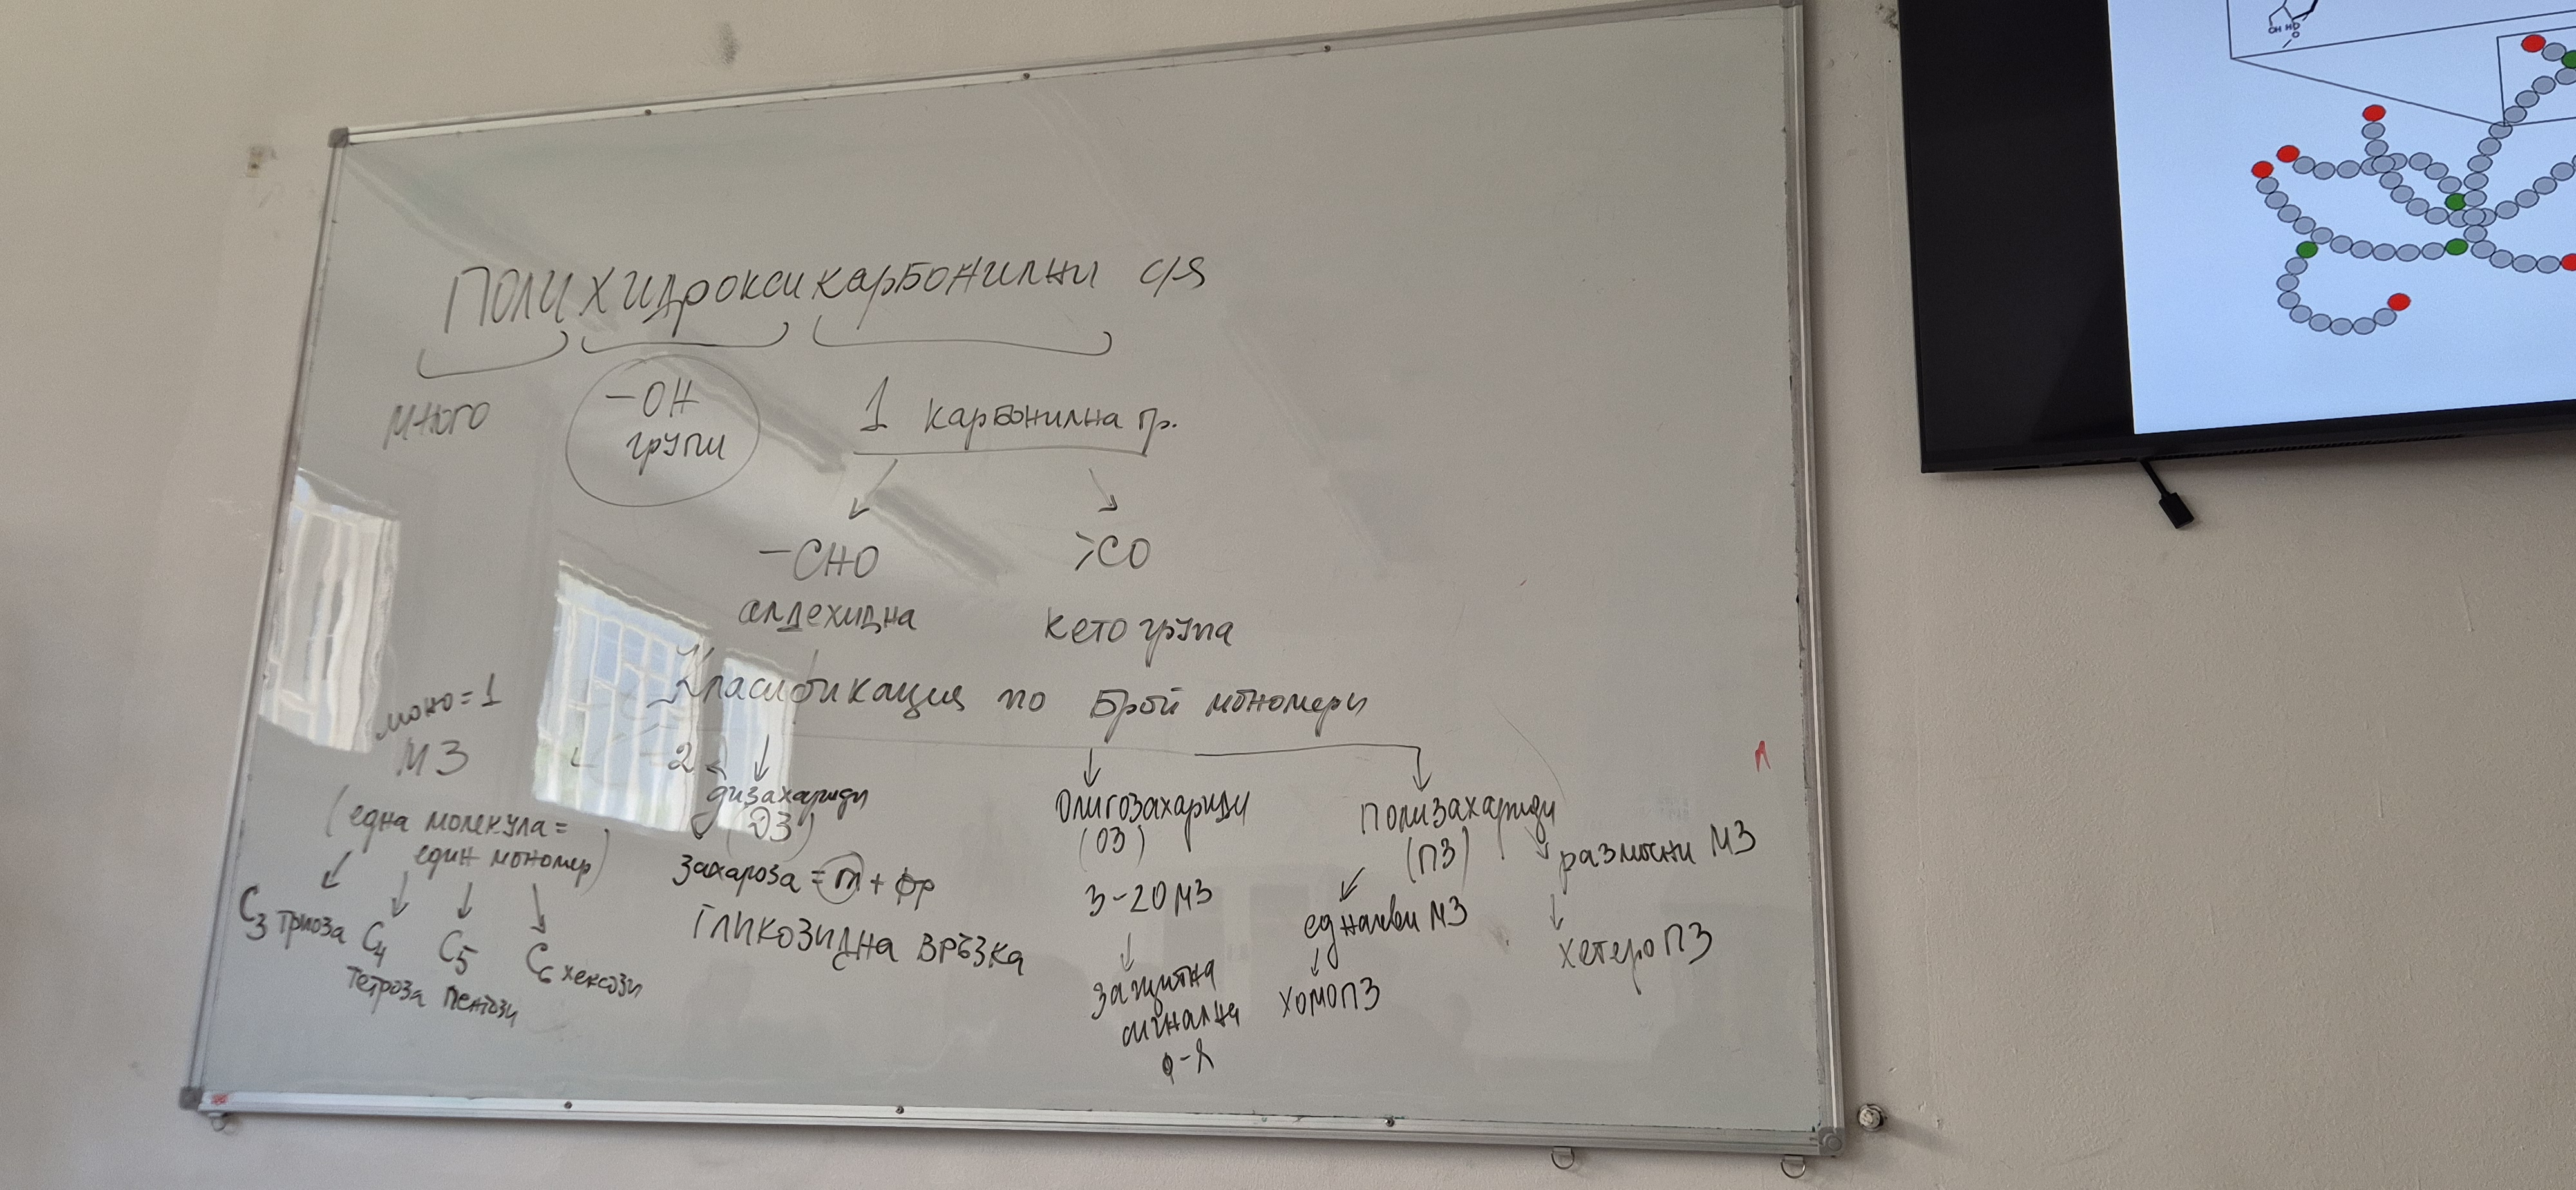 ПОЛИХИДРОКСИКАРБОНИЛНИ С/Я
МНОГО
–ОН
групи
1 карбонилна гр.
–СНО
>СО
алдехидна
кето група
Класификация по брой мономери
моно=1
МЗ
(една молекула=
един мономер)
C3 триоза
C4
тетроза
C5
пентози
C6 хексози
2
дизахариди
(ДЗ)
захароза = гл + фр
ГЛИКОЗИДНА ВРЪЗКА
Олигозахариди
(ОЗ)
3-20 МЗ
защитна
сигнална
ф-я
Полизахариди
(ПЗ)
еднакви МЗ
ХОМОПЗ
различни МЗ
хетероПЗ
OH HO
O